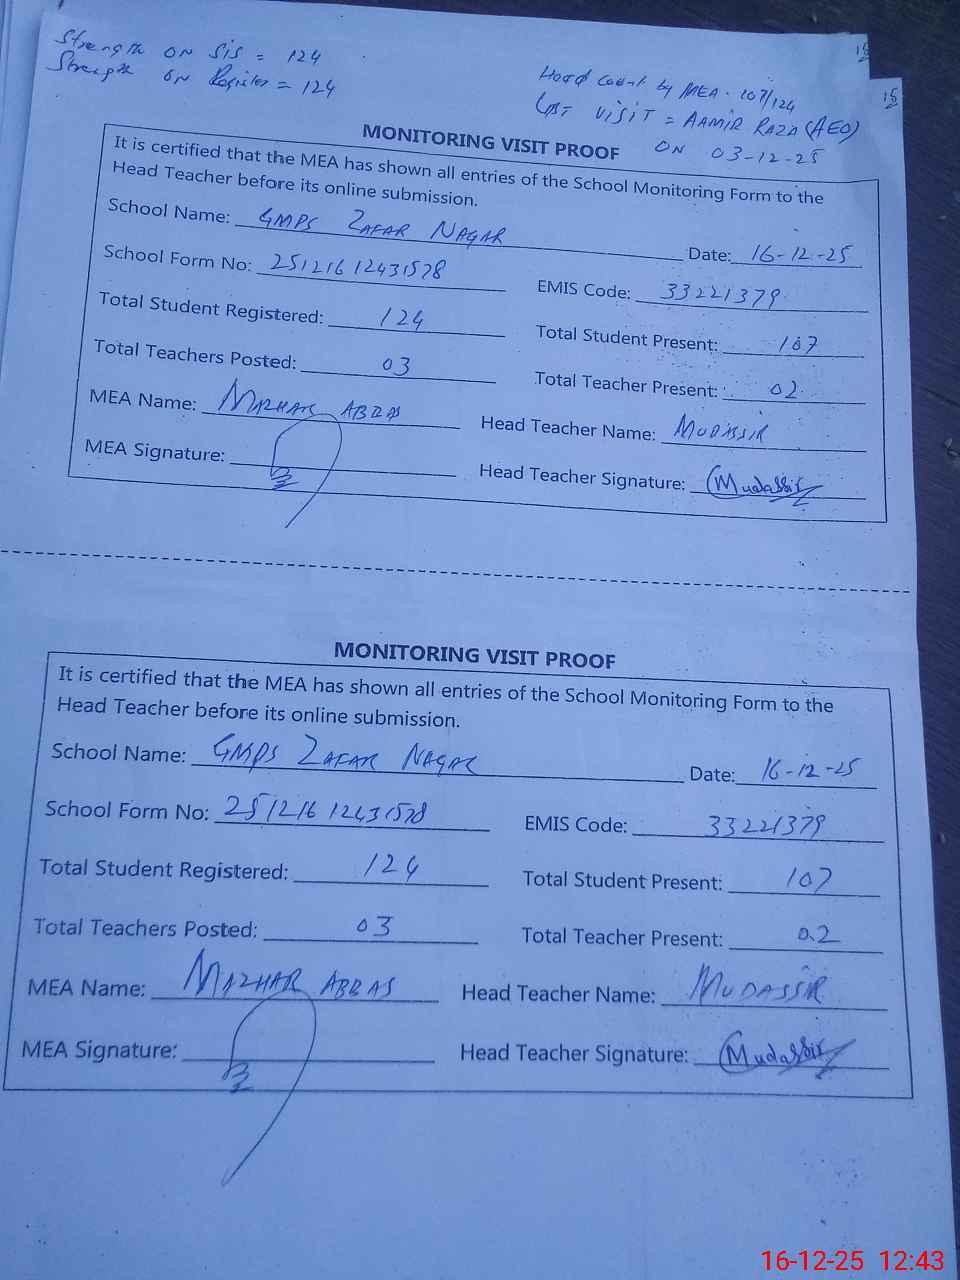 Strength on SIS = 124
Strength on Register = 124
Head Count by MEA. 107/124
Last Visit = AAMIR RAZA (AEO)
ON 03-12-25
15
15
MONITORING VISIT PROOF
It is certified that the MEA has shown all entries of the School Monitoring Form to the
Head Teacher before its online submission.
School Name: GMPS ZAFAR NAGAR Date: 16-12-25
School Form No: 25121612431578 EMIS Code: 33221379
Total Student Registered: 124 Total Student Present: 107
Total Teachers Posted: 03 Total Teacher Present: 02
MEA Name: MAZHAR ABBAS Head Teacher Name: MUDASSIR
MEA Signature: Head Teacher Signature: Mudassir
MONITORING VISIT PROOF
It is certified that the MEA has shown all entries of the School Monitoring Form to the
Head Teacher before its online submission.
School Name: GMPS ZAFAR NAGAR Date: 16-12-25
School Form No: 25121612431578 EMIS Code: 33221379
Total Student Registered: 124 Total Student Present: 107
Total Teachers Posted: 03 Total Teacher Present: 02
MEA Name: MAZHAR ABBAS Head Teacher Name: MUDASSIR
MEA Signature: Head Teacher Signature: Mudassir
16-12-25 12:43